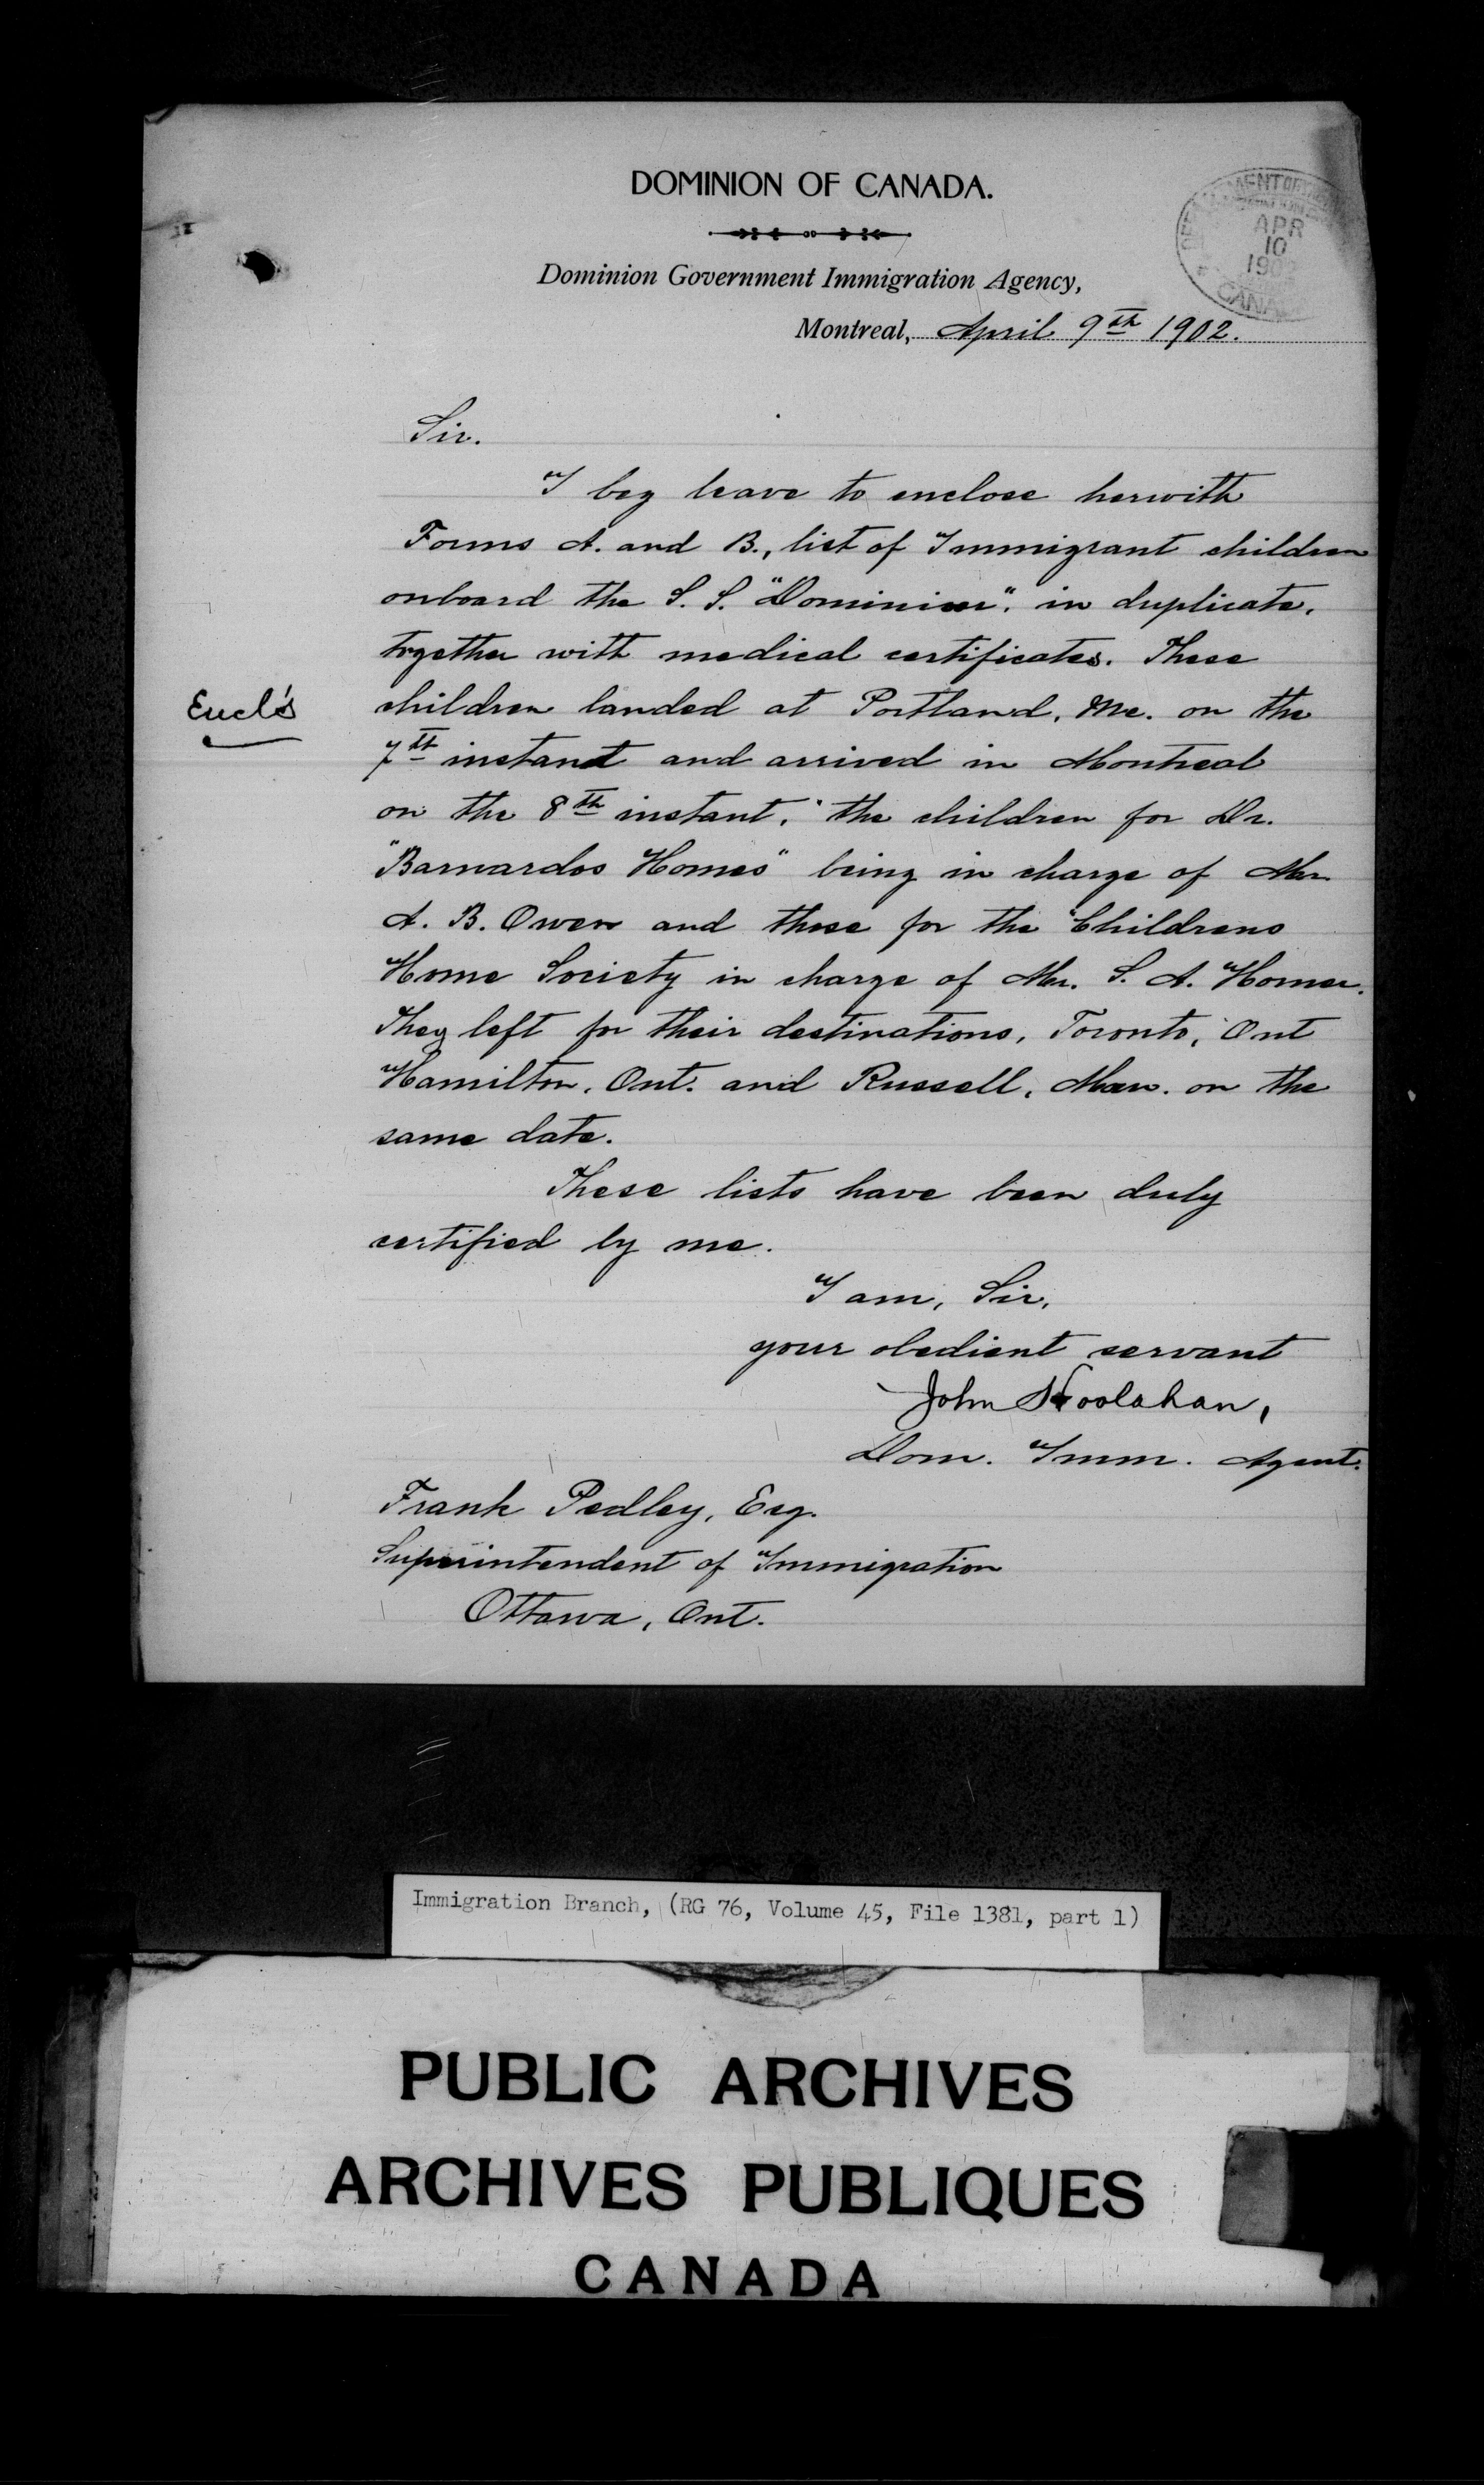 DOMINION OF CANADA.
Dominion Government Immigration Agency,
APR
10
CANADA
Montreal, April 9th 1902.
Sir.
I beg leave to enclose herwith
Forms A. and B., list of Immigrant children
onboard the S. S. "Dominion". in duplicate,
together with medical certificates. These
Encl's
children landed at Portland, Me. on the
7th instant and arrived in Montreal
on the 8th instant, the children for Dr.
"Barnardos Homes" being in charge of Mr
A. B. Owen and those for the Childrens
Home Society in charge of Mr. S. A. Homer.
They left for their destinations, Toronto, Ont
Hamilton, Ont. and Russell, Man. on the
same date.
These lists have been duly
certified by me.
I am, Sir,
your obedient servant
John Hoolahan,
Dom. Imm. Agent.
Frank Pedley, Esq.
Superintendent of Immigration
Ottawa, Ont.
Immigration Branch, (RG 76, Volume 45, File 1381, part 1)
PUBLIC ARCHIVES
ARCHIVES PUBLIQUES
CANADA